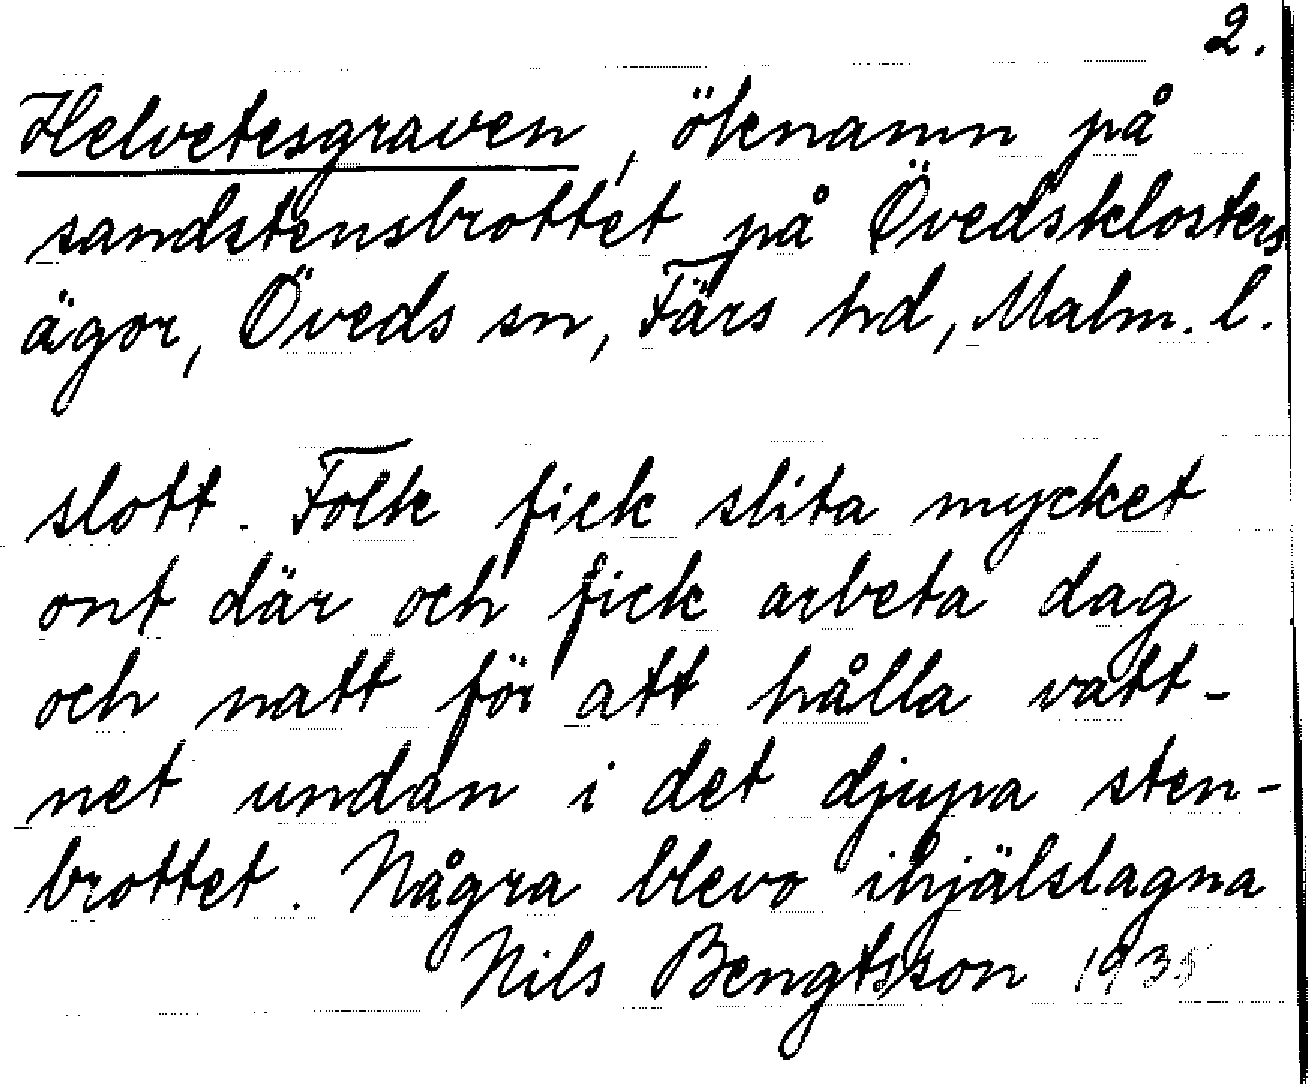 2.
Helvetesgraven, öknamn på
sandstensbrottet på Övedsklosters
ägor, Öveds sn, Färs hd, Malm. l.
slott. Folk fick slita mycket
ont där och fick arbeta dag
och natt för att hålla vatt-
net undan i det djupa sten-
brottet. Några blevo ihjälslagna
Nils Bengtsson